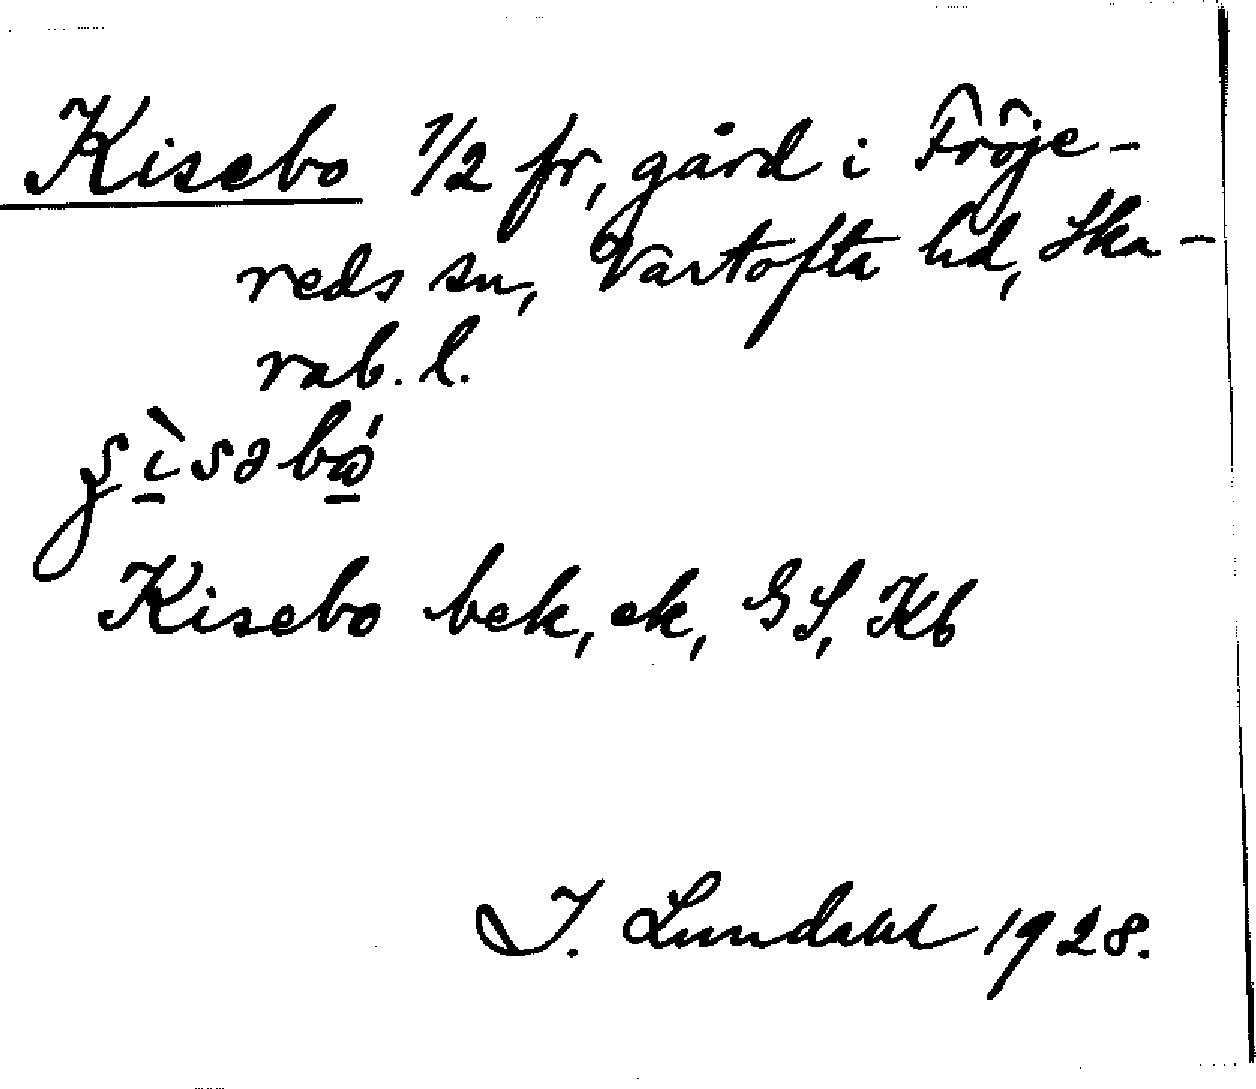 Kisebo 1/2 fr, gård i Fröje-
reds sn, Vartofta hd, Ska-
rab. l.
Kisebo bek, ek, GS, Kb
I. Lundahl 1928.